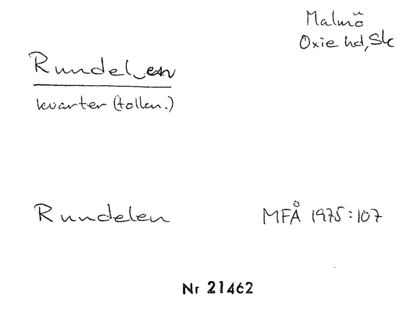 Malmö
Oxie hd, Sk
Rundelen
kvarter (tollen.)
Rundelen MFÅ 1975:107
Nr 21462